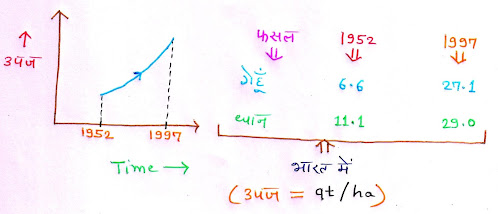 फसल 1952 1997
उपज
गेहूँ 6.6 27.1
धान 11.1 29.0
1952 1997
Time →
भारत में
(उपज = qt/ha)